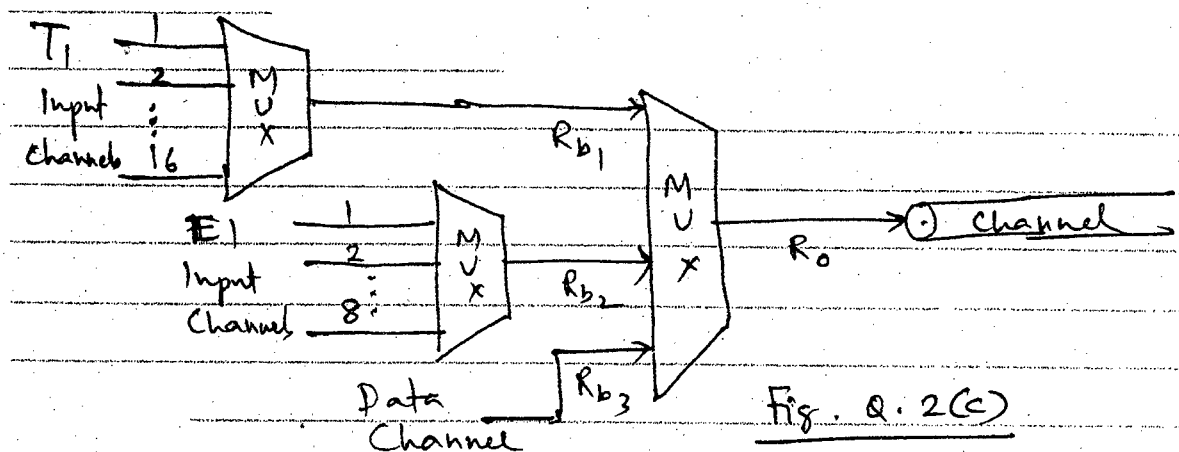 T1 1
Input 2
Channels 16
MUX
Rb1
E1 1
Input 2
Channel, 8
MUX
Rb2
Data
Channel
Rb3
MUX
R0
Channel
Fig. Q. 2(C)